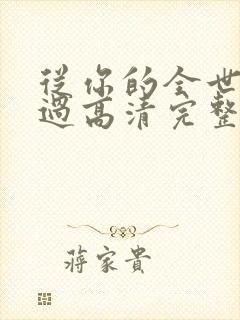 從你的全世
過高清完整
蔣家貴